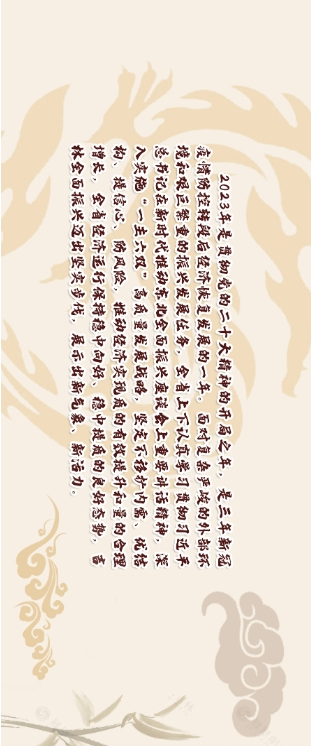 2023年是贯彻党的二十大精神的开局之年，是三年新冠
疫情防控转段后经济恢复发展的一年。面对复杂严峻的外部环
境和艰巨繁重的振兴发展任务，全省上下认真学习贯彻习近平
总书记在新时代推动东北全面振兴座谈会上重要讲话精神，深
入实施“一主六双”高质量发展战略，坚定不移扩内需、优结
构、提信心、防风险，推动经济实现质的有效提升和量的合理
增长，全省经济运行保持稳中向好、稳中提质的良好态势，吉
林全面振兴迈出坚实步伐，展示出新气象、新活力。